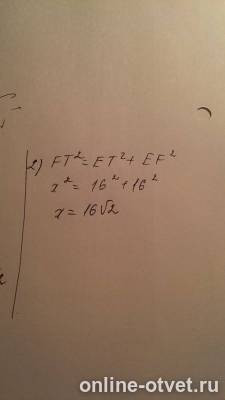 2) FT² = ET² + EF²
x² = 16² + 16²
x = 16√2
online-otvet.ru